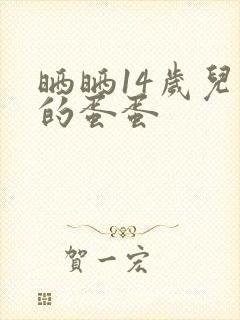 晒晒14歲兒
的蛋蛋
賀一宏